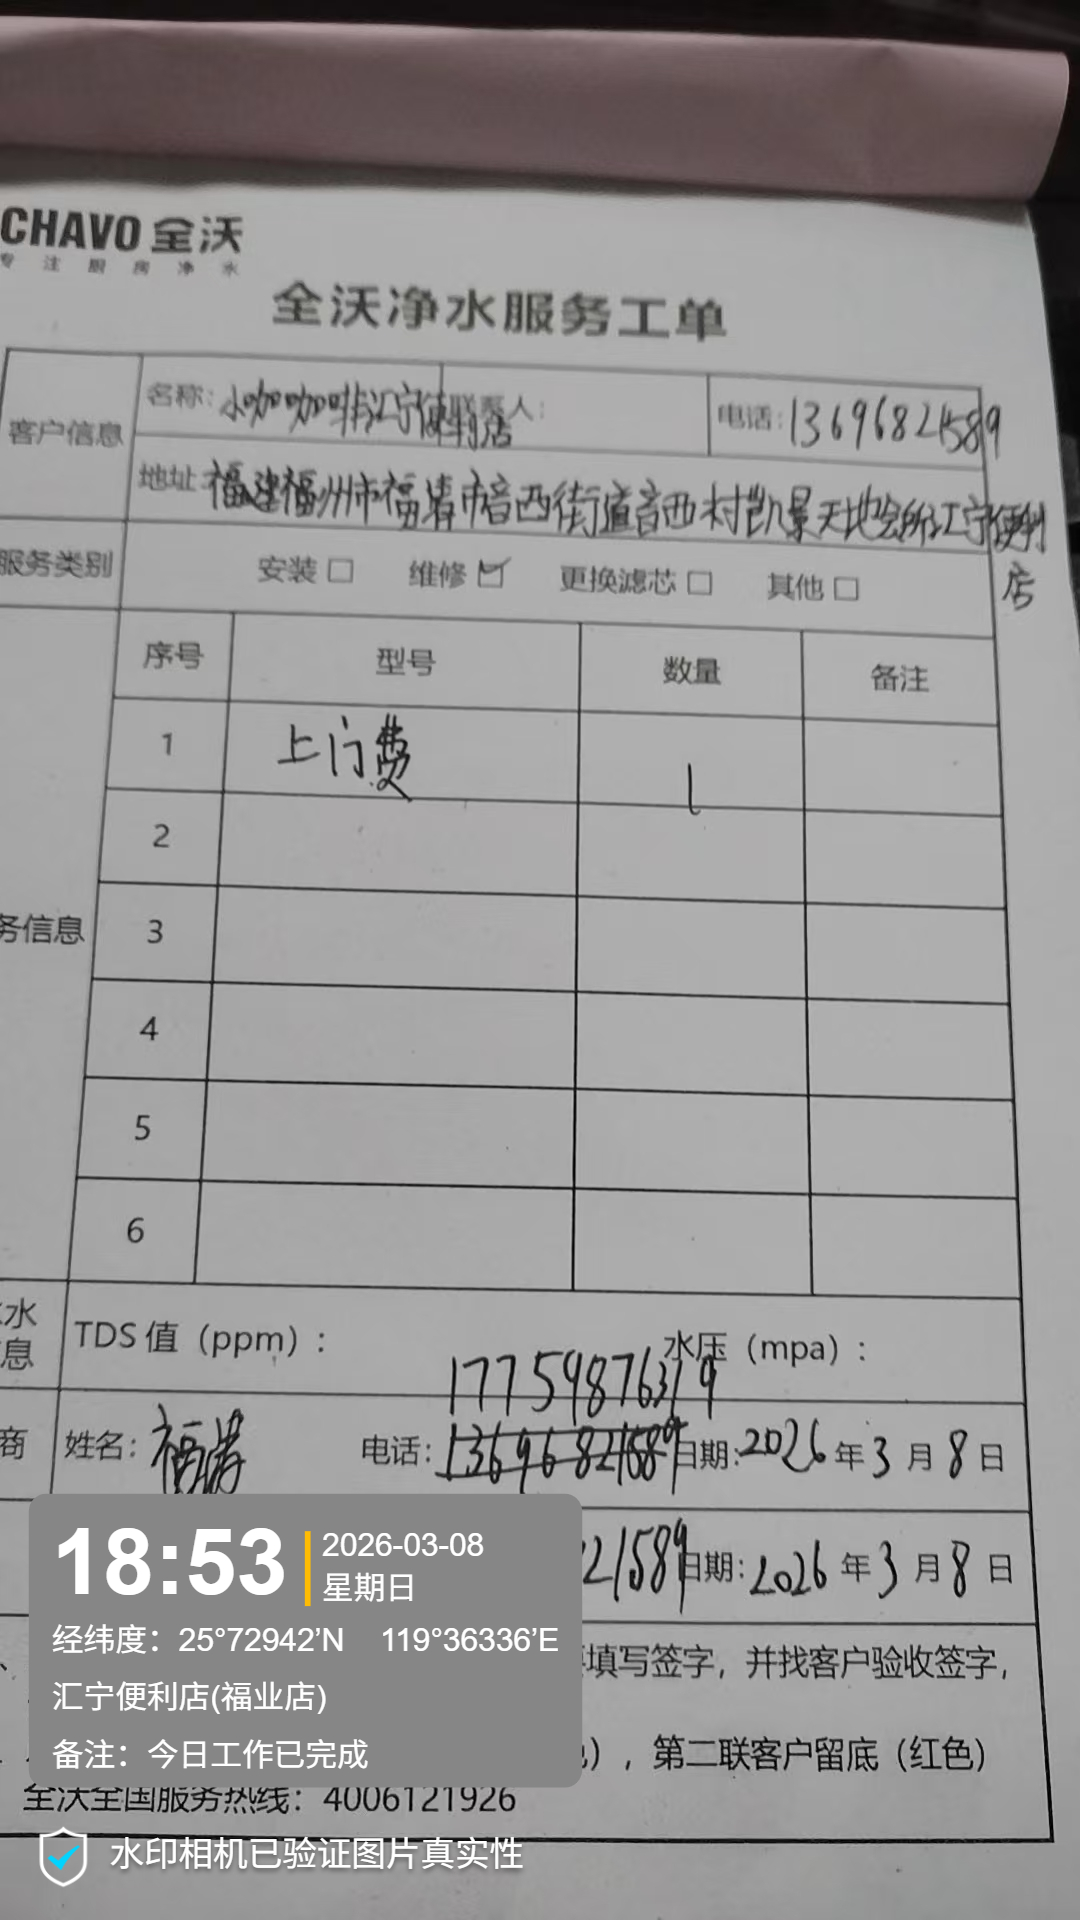 CHAVO 全沃
专注厨房净水
全沃净水服务工单
客户信息 名称：小咖咖啡汇宁便利店 联系人： 电话：13696821589
地址 福建福州市福清市音西街道音西村凯景天地会所汇宁便利店
服务类别 安装 □ 维修 ☑ 更换滤芯 □ 其他 □
序号 型号 数量 备注
1 上门费 1
2
务信息 3
4
5
6
水 息 TDS 值（ppm）： 水压（mpa）：
17759876319
商 姓名： 电话：13696821589 日期：2026 年 3 月 8 日
21589 日期：2026 年 3 月 8 日
填写签字，并找客户验收签字，
），第二联客户留底（红色）
全沃全国服务热线：4006121926
18:53 2026-03-08
星期日
经纬度：25°72942'N 119°36336'E
汇宁便利店(福业店)
备注：今日工作已完成
水印相机已验证图片真实性